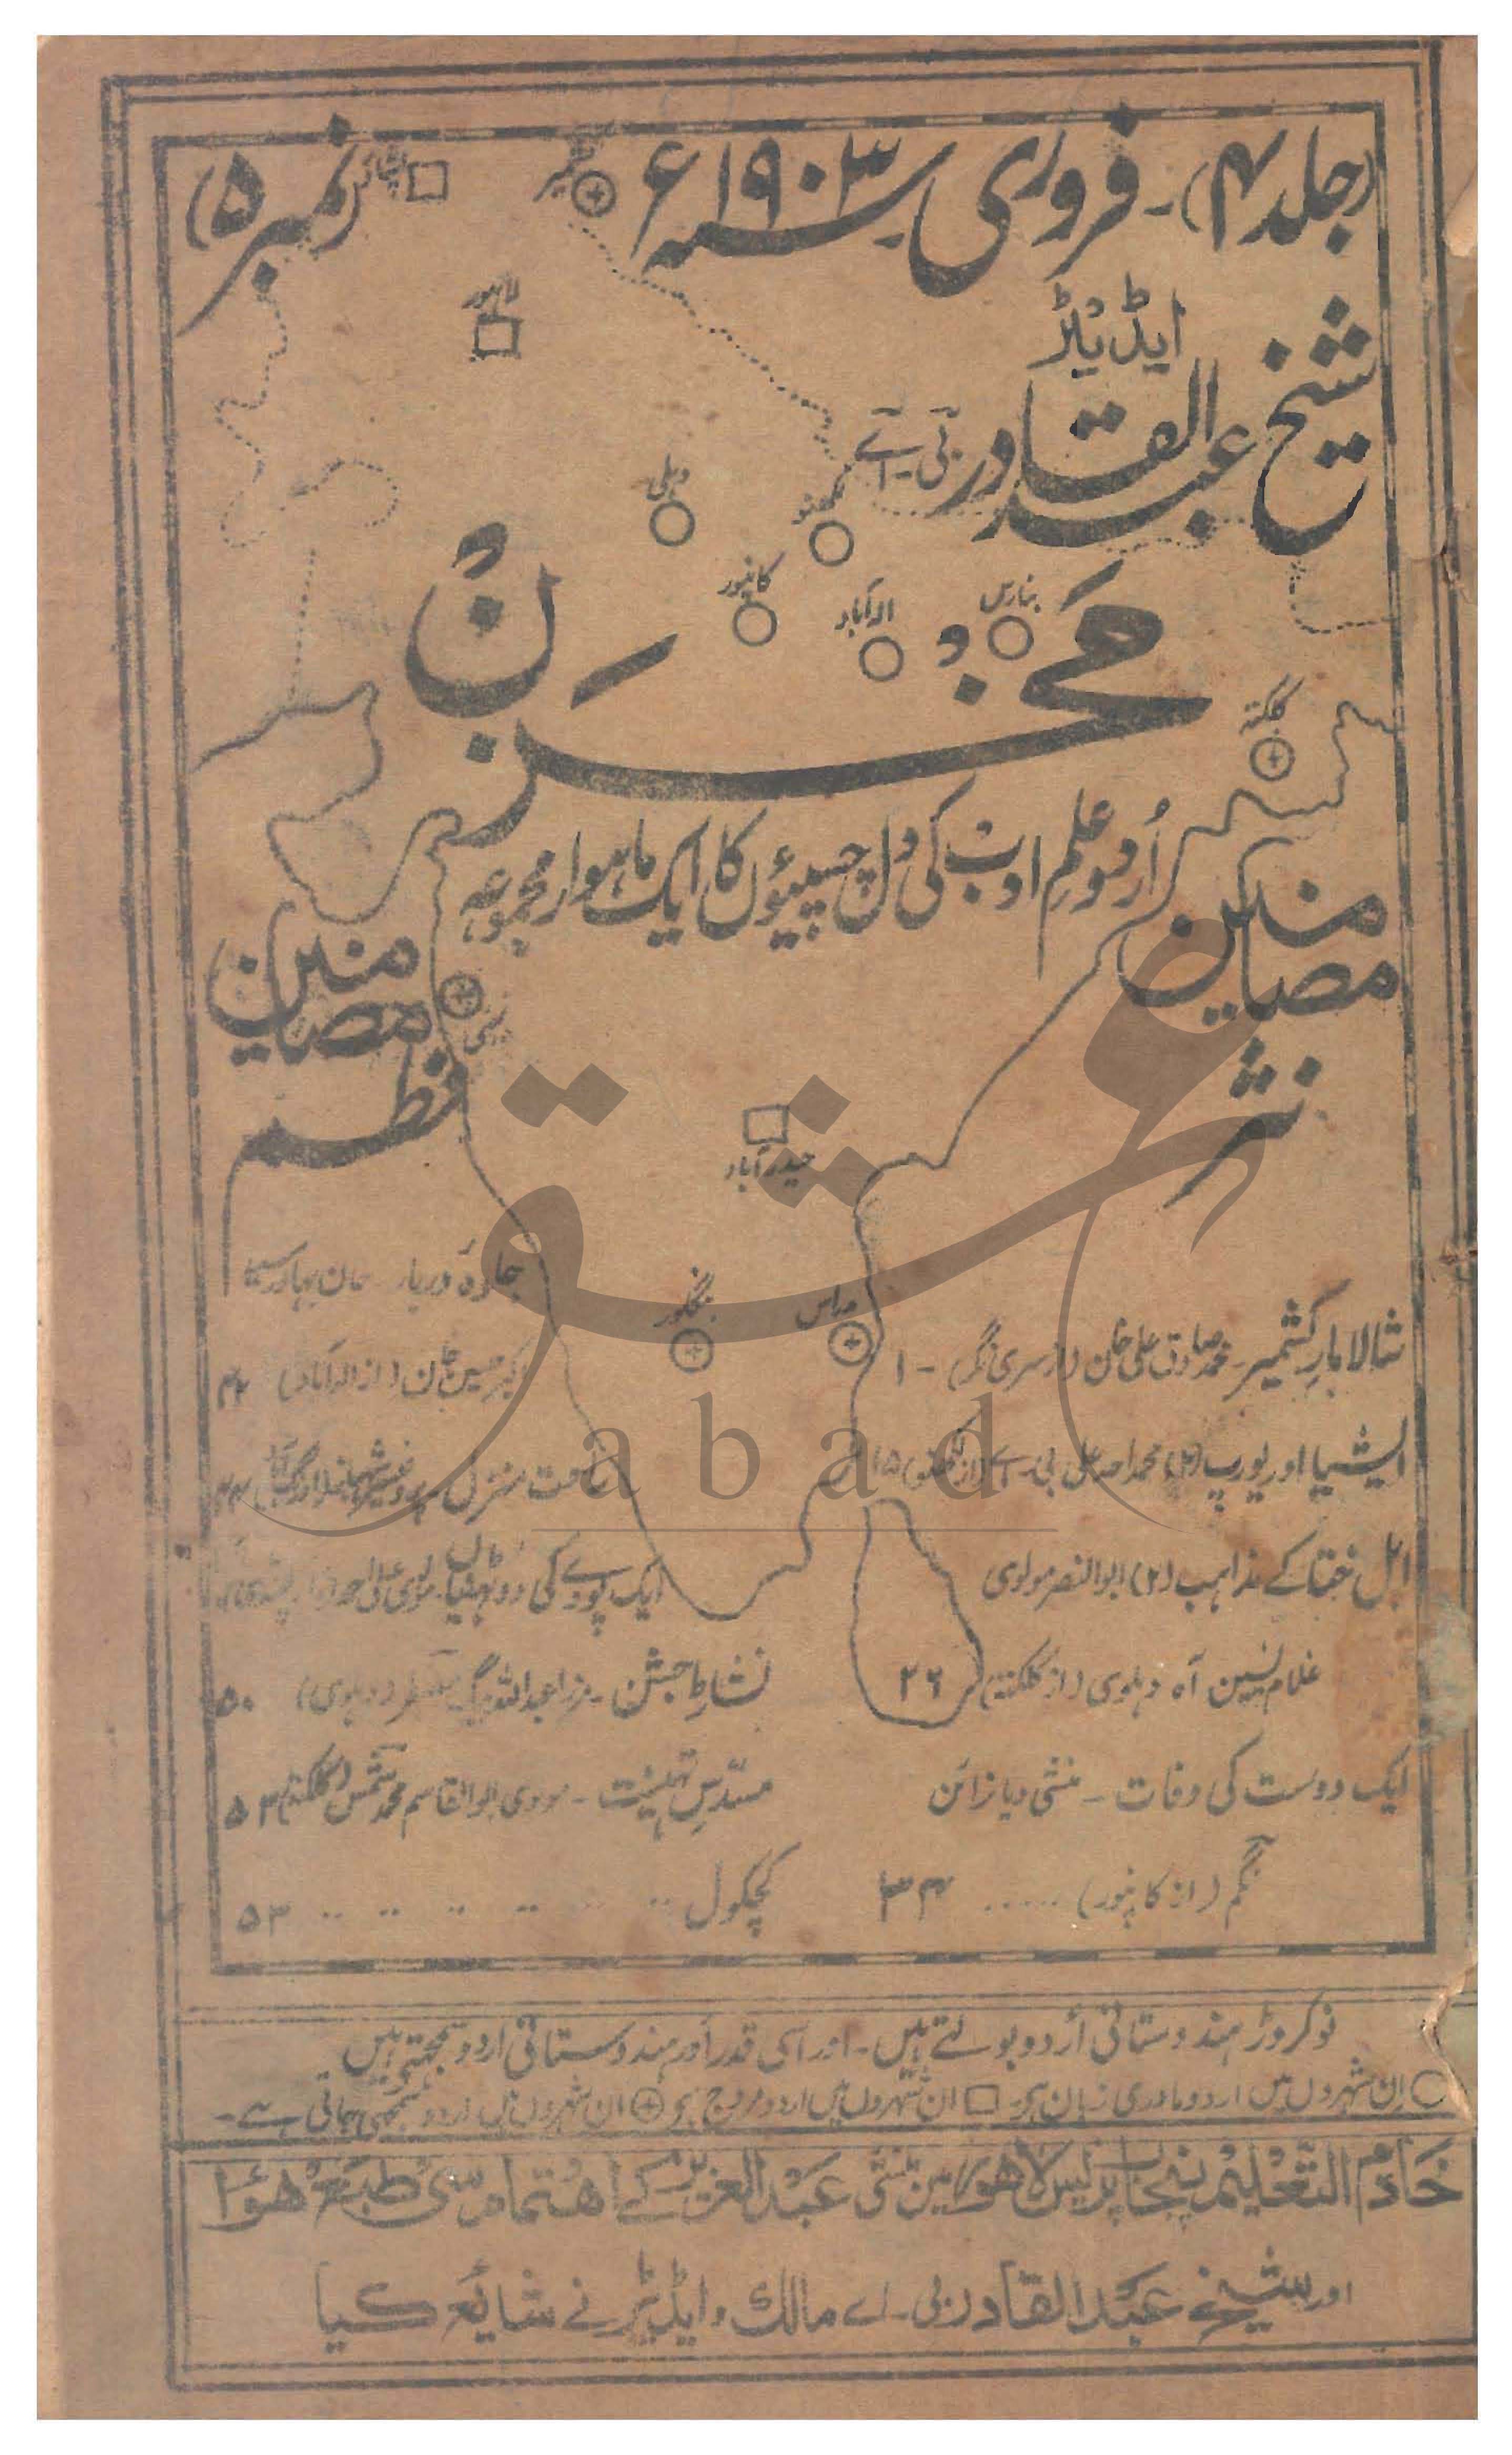 (جلد ۴)۔ فروری سنہ ۱۹۰۳ء (نمبر ۵)
کشمیر
لاہور
ایڈیٹر
شیخ عبدالقادر بی۔اے
دہلی
لکھنو
کانپور
الہ آباد
بنارس
مَخزَن
کلکتہ
اُردو علم ادب کی دلچسپیوں کا ایک ماہوار مجموعہ
مضامین
نثر
مضامین
نظم
بمبئی
حیدرآباد
بنگلور
مدراس
شالامار کشمیر۔ محمد صادق علی خان (از سری نگر) - ۱
ایشیا اور یورپ (۲) محمد احمد علی بی۔اے (از لکھنو) ۱۵
اہل ختا کے مذاہب (۲) ابوالنصر مولوی
غلام یٰسین آہ دہلوی (از کلکتہ) ۲۶
ایک دوست کی وفات ۔ منشی دیا نرائن
نگم (از کانپور) ...... ۳۴
جلوۂ دربار۔ خان بہادر سید
اکبر حسین (از الہ آباد)
منزل
ایک پودے کی دو ٹہنیاں۔ مولوی
نشاطِ جشن ۔ مرزا عبداللہ بیگ (دہلوی) ۵۰
مسدّسِ تہنیت ۔ مولوی ابوالقاسم محمد شمس (کلکتہ) ۵۳
کچکول .. .. .. .. .. ۵۳
نو کروڑ ہندوستانی اُردو بولتے ہیں۔ اور اسی قدر اَور ہندوستانی اردو سمجھتے ہیں
○ اِن شہروں میں اردو مادری زبان ہے۔ □ ان شہروں میں اردو مروج ہے ⊕ ان شہروں میں اردو سمجھی جاتی ہے۔
خادم التعلیم پنجاب پریس لاہور میں منشی عبدالعزیز کے اہتمام سے طبع ہوا
اور شیخ عبدالقادر بی۔اے مالک و ایڈیٹر نے شایع کیا
عشق
abad